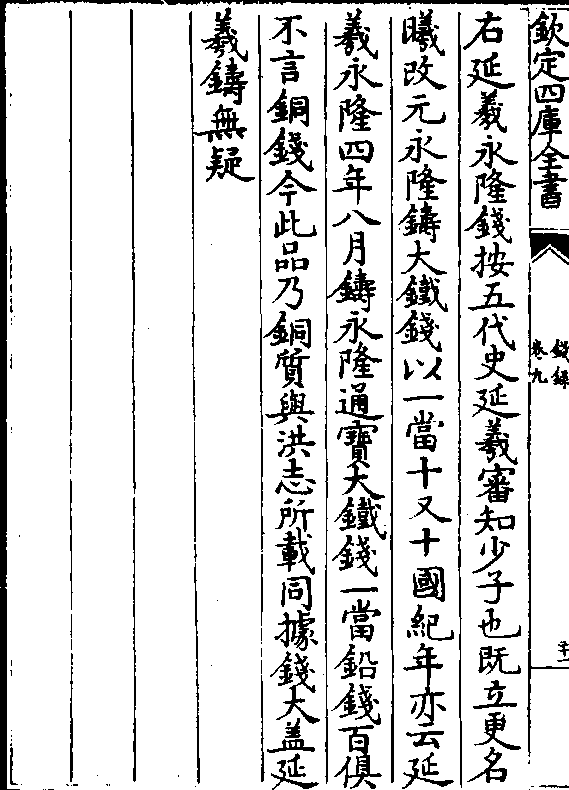 欽定四庫全書
錢錄
卷九
右延羲永隆錢按五代史延羲審知少子也既立更名
曦改元永隆鑄大鐵錢以一當十又十國紀年亦云延
羲永隆四年八月鑄永隆通寶大鐵錢一當鉛錢百俱
不言銅錢今此品乃銅質與洪志所載同據錢大盖延
羲鑄無疑